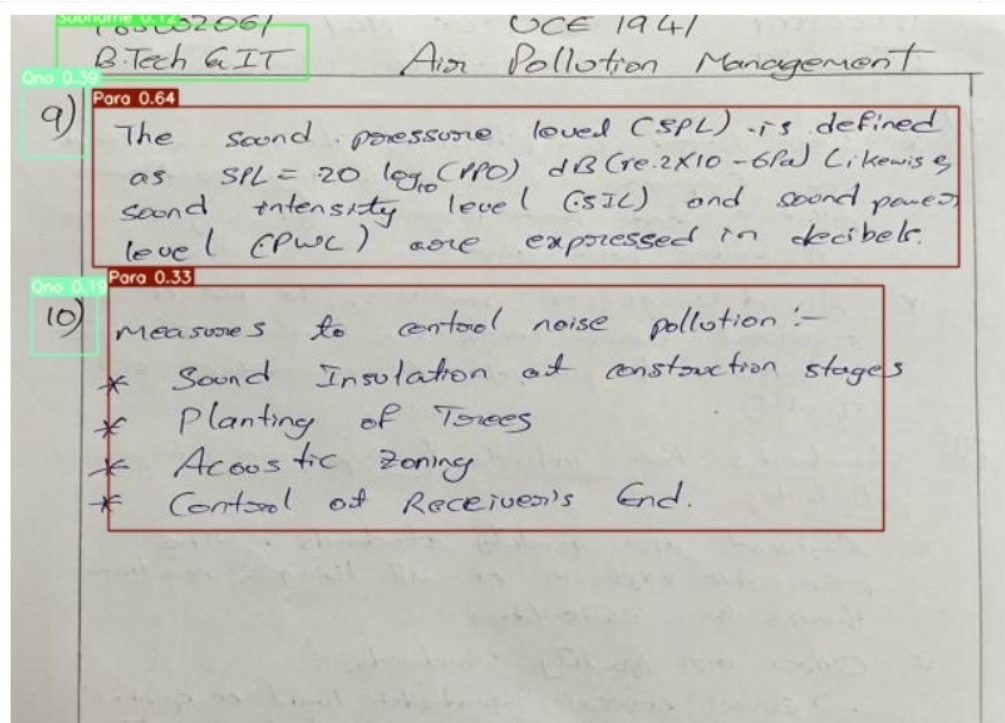 Subname 0.12
UCE 1941
B.Tech & IT
Air Pollution Management
Qno 0.39
Para 0.64
9)
The sound pressure level (SPL) is defined
as SPL = 20 log10 (PPO) dB (re.2X10 -6Pa) Likewise,
sound intensity level (SIL) and sound power
level (PWL) are expressed in decibels.
Qno 0.19
Para 0.33
10)
Measures to control noise pollution :-
* Sound Insulation at construction stages
* Planting of Trees
* Acoustic Zoning
* Control at Receiver's End.